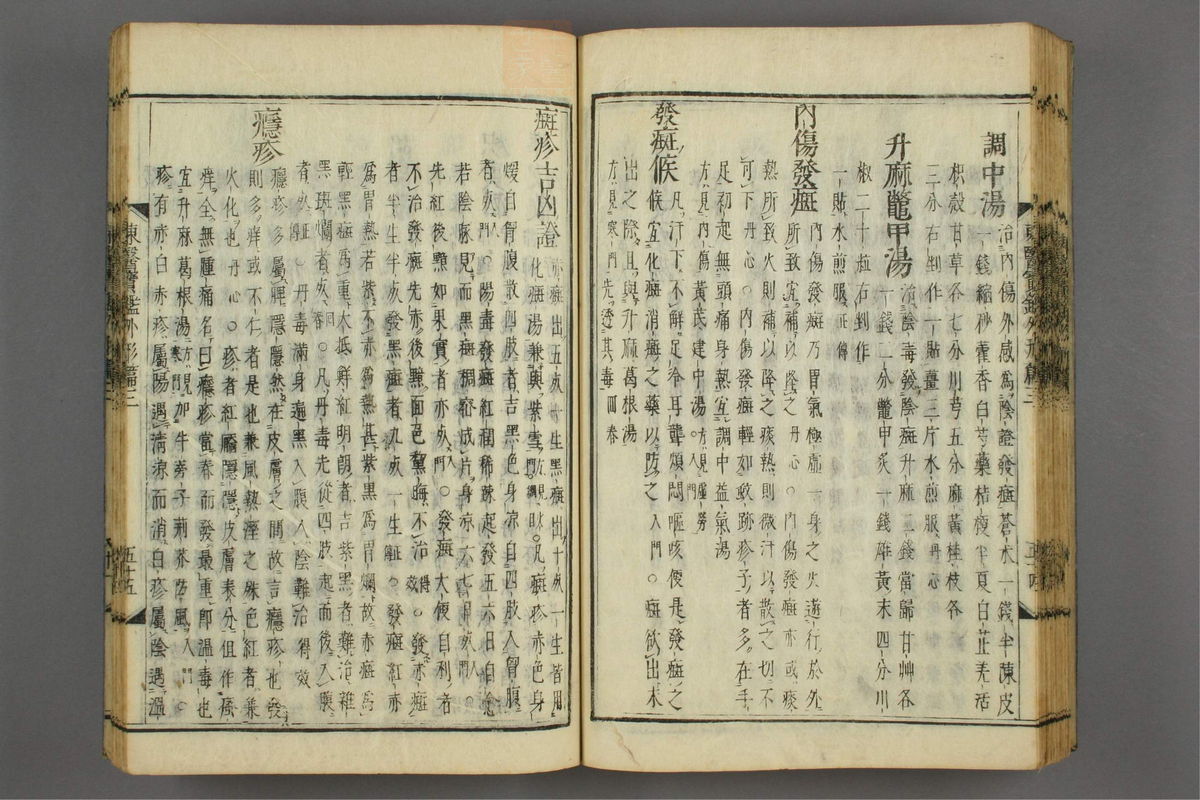 調中湯 治內傷外感爲陰證發癍蒼朮一錢半陳皮
一錢縮砂藿香白芍藥桔梗半夏白芷羌活
枳殼甘草各七分川芎五分麻黃桂枝各
三分右剉作一貼薑三片水煎服丹心
升麻鼈甲湯 治陰毒發陰癍升麻二錢當歸甘艸各
一錢二分鼈甲炙一錢雄黃末四分川
椒二十粒右剉作
一貼水煎服
內傷發癍 內傷發癍乃胃氣極虛一身之火遊行於外
所致宜補以降之丹心○內傷發癍亦或痰
熱所致火則補以降之痰熱則微汗以散之切不
可下丹心○內傷發癍輕如蚊跡疹子者多在手
足初起無頭痛身熱宜調中益氣湯
方見內傷黃芪建中湯方見虛勞入門
發癍候 凡汗下不解足冷耳聾煩悶嘔咳便是發癍之
候宜化癍消癍之藥以防之入門○癍欲出未
出之際且與升麻葛根湯
方見寒門先透其毒
癍疹吉凶證 赤癍出五死一生黑癍出十死一生皆用
化癍湯兼與紫雪○凡癍疹赤色身
煖自胷腹散四肢者吉黑色身凉自四肢入胷腹
者死入門○陽毒發癍紅潤稀踈起發五六日自愈
若陰脉見而黑癍稠密成片身凉六七日死入門○
先紅後黯如果實者亦死入門○發癍大便自利者
不治發癍先赤後黯面色黧晦不治得效○發赤癍
者半生半死發黑癍者九死一生○發癍紅赤
爲胃熱若紫不赤爲熱甚紫黑爲胃爛故赤癍爲
輕黑癍爲重大抵鮮紅明朗者吉紫黑者難治雜
黑斑爛者死○凡丹毒先從四肢起而後入腹
者死○丹毒滿身遍黑入腹入陰難治得效
癮疹 癮疹多屬脾隱隱然在皮膚之間故言癮疹也發
則多痒或不仁者是也兼風熱濕之殊色紅者兼
火化也丹心○疹者紅靨隱隱皮膚表分但作瘙
痒全無腫痛名曰癮疹當春而發最重卽溫毒也
宜升麻葛根湯方見寒門加牛蒡子荊芥防風入門○
疹有赤白赤疹屬陽遇淸凉而消白疹屬陰遇溫
東醫寶鑑外形篇三
五十五